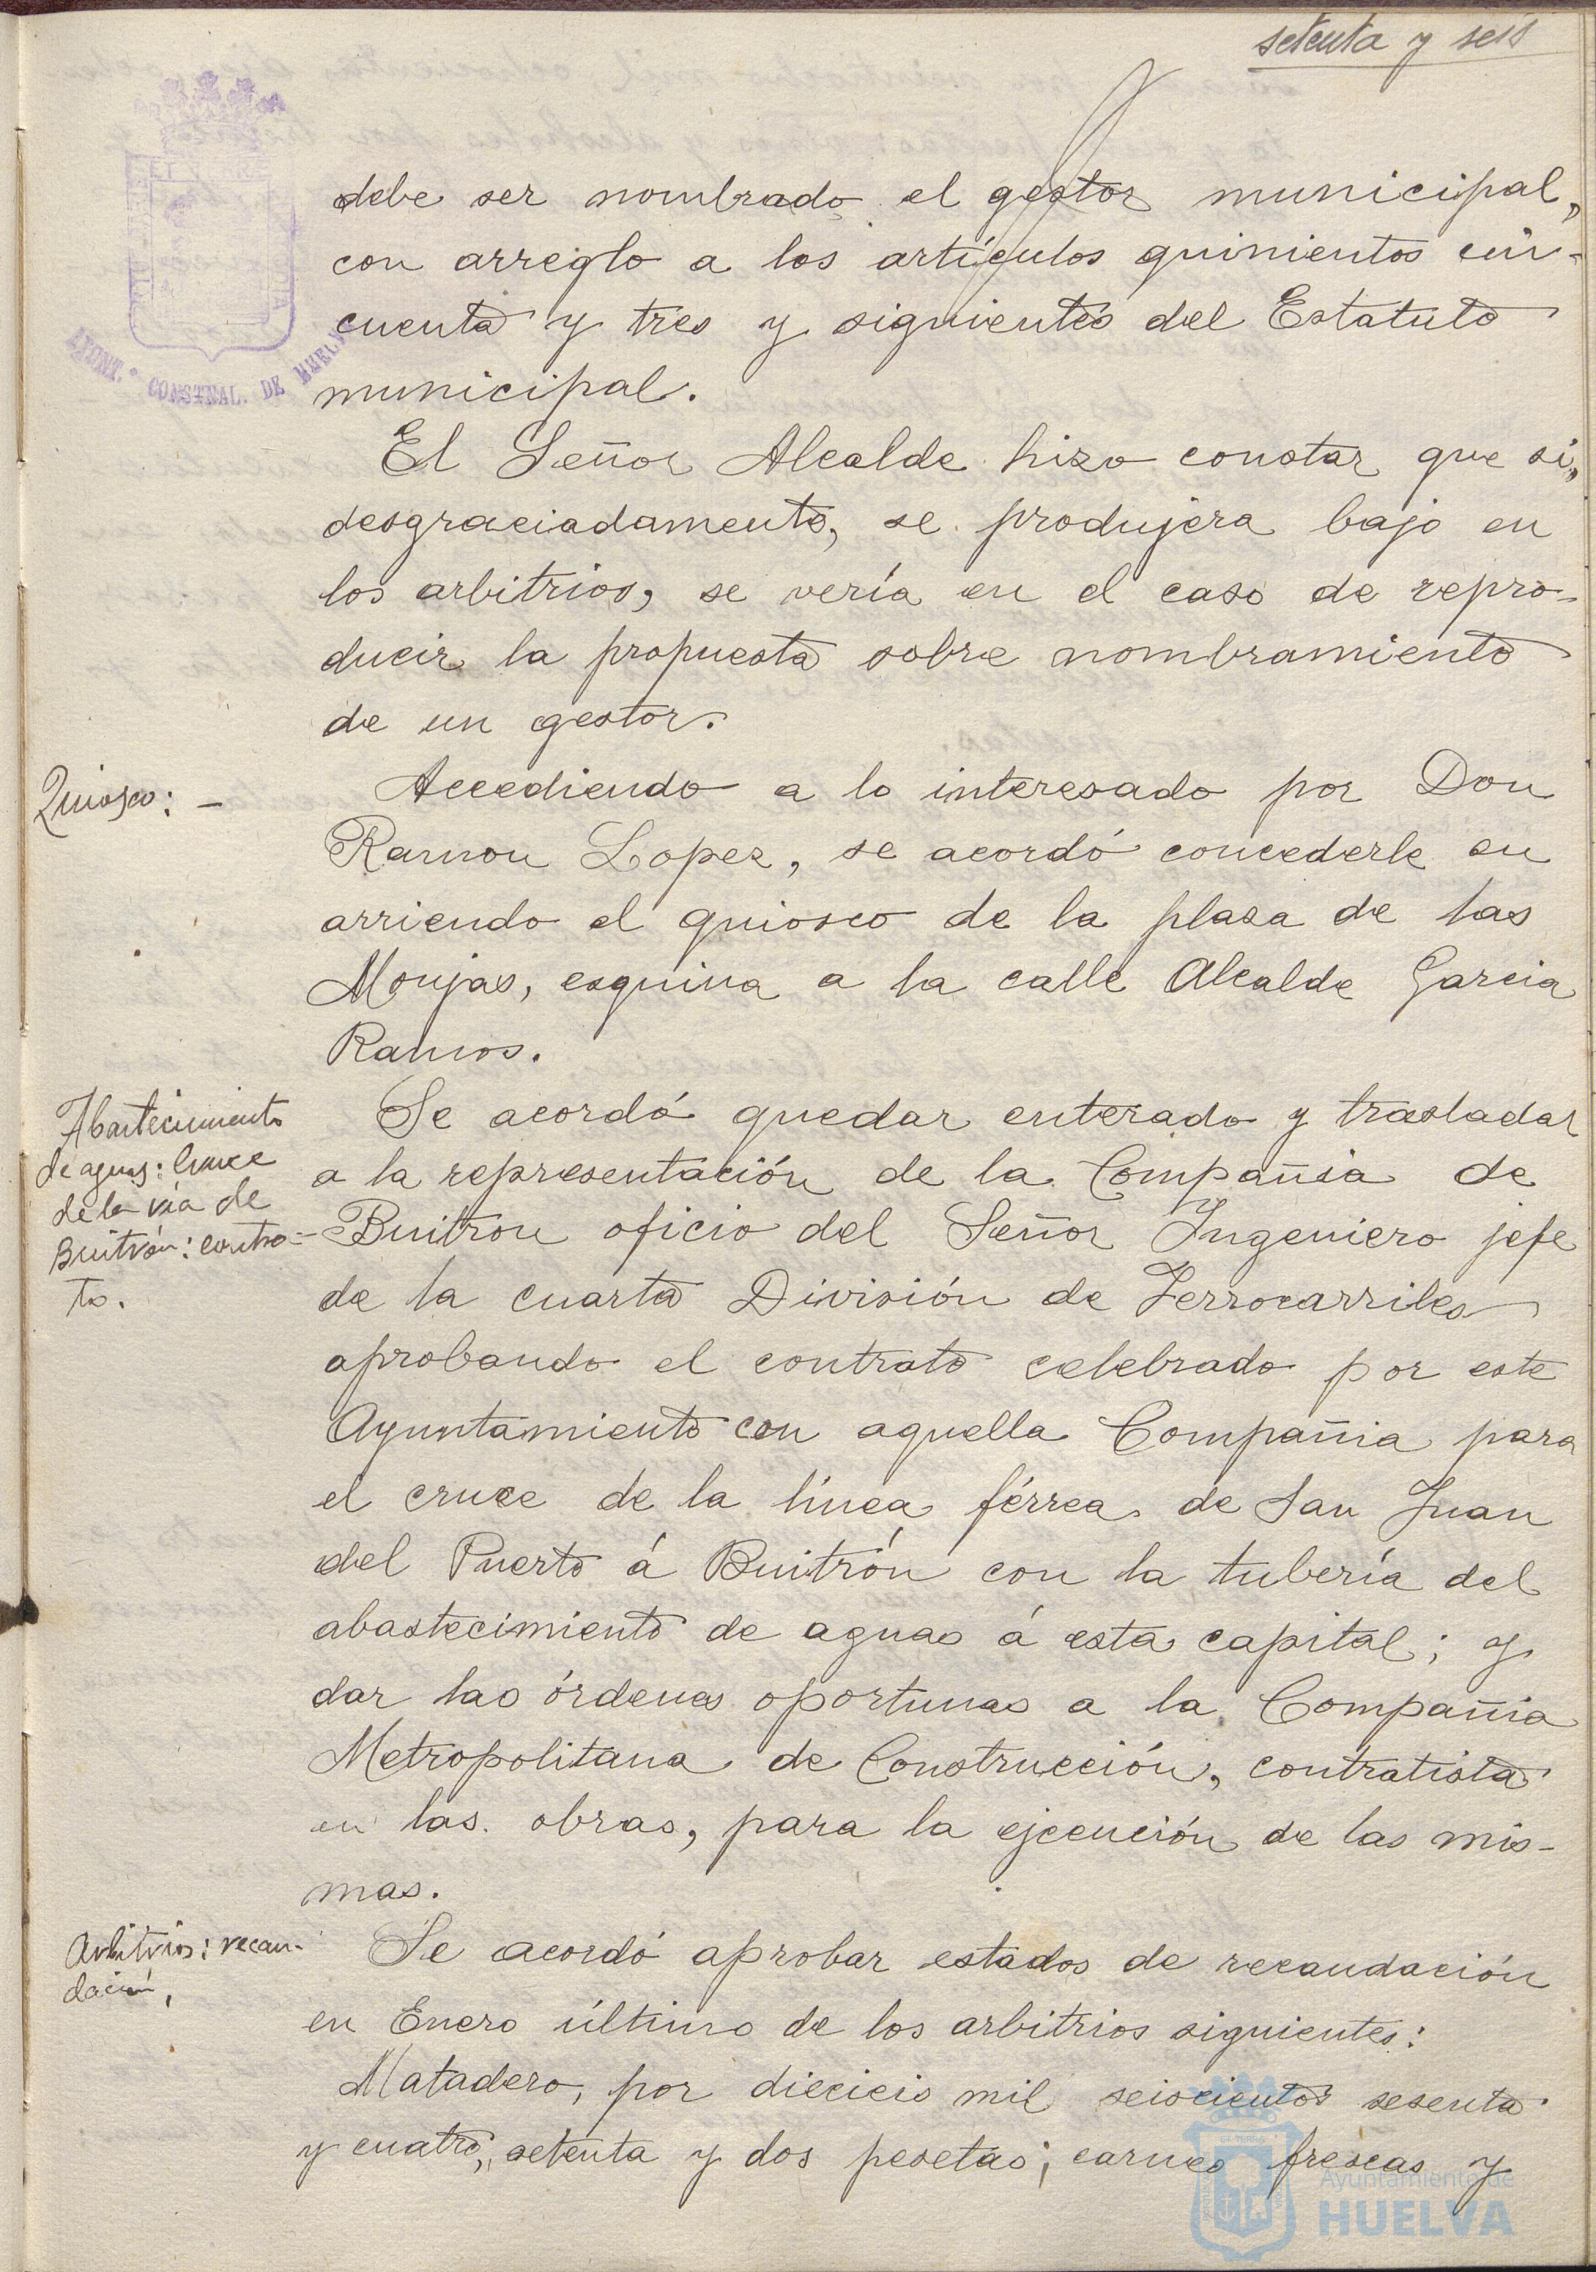 setenta y seis
debe ser nombrado el gestor municipal,
con arreglo a los artículos quinientos cin-
cuenta y tres y siguientes del Estatuto
municipal.
AYUNT.º CONSTNAL. DE HUELVA
El Señor Alcalde hizo constar que si,
desgraciadamente, se produjera baja en
los arbitrios, se vería en el caso de repro-
ducir la propuesta sobre nombramiento
de un gestor.
Quiosco: -
Accediendo a lo interesado por Don
Ramon Lopez, se acordó concederle en
arriendo el quiosco de la plaza de las
Monjas, esquina a la calle Alcalde Garcia
Ramos.
Abastecimiento
de aguas: Cruce
de la vía de
Buitrón: contra-
to.
Se acordó quedar enterado y trasladar
a la representación de la Compañia de
Buitron oficio del Señor Ingeniero jefe
de la cuarta División de Ferrocarriles
aprobando el contrato celebrado por este
Ayuntamiento con aquella Compañia para
el cruce de la línea férrea de San Juan
del Puerto á Buitrón con la tubería del
abastecimiento de aguas á esta capital; y
dar las órdenes oportunas a la Compañia
Metropolitana de Construcción, contratista
en las obras, para la ejecución de las mis-
mas.
Arbitrios: recau-
dación,
Se acordó aprobar estados de recaudación
en Enero último de los arbitrios siguientes:
Matadero, por dieciseis mil seiscientos sesenta
y cuatro, setenta y dos pesetas; carnes frescas y
Ayuntamiento de
HUELVA